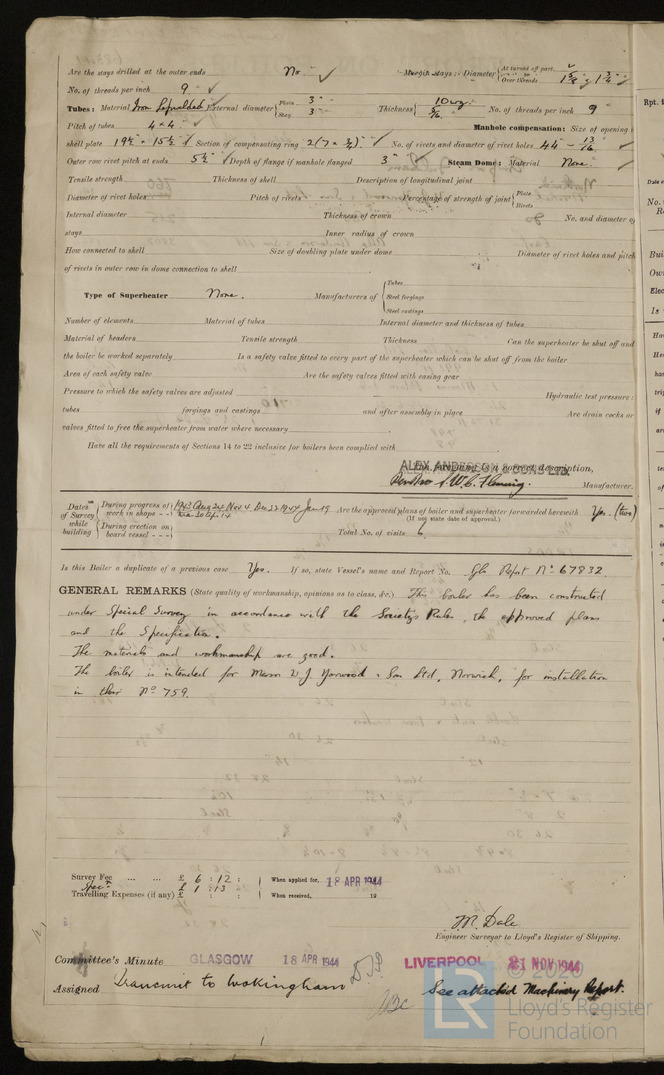 Are the stays drilled at the outer ends No Margin stays: Diameter { At turned off part, or Over threads 1 5/8" & 1 3/4"
No. of threads per inch 9
Tubes: Material Iron Lapwelded External diameter { Plain 3" Stay 3" Thickness { 10 wg. 5/16 No. of threads per inch 9
Pitch of tubes 4 × 4 Manhole compensation: Size of opening i
shell plate 19½ × 15½ Section of compensating ring 2(7 × ¾) No. of rivets and diameter of rivet holes 44 - 13/16
Outer row rivet pitch at ends 5½ Depth of flange if manhole flanged 3" Steam Dome: Material None.
Tensile strength Thickness of shell Description of longitudinal joint
Diameter of rivet holes Pitch of rivets Percentage of strength of joint { Plate Rivets
Internal diameter Thickness of crown No. and diameter of
stays Inner radius of crown
How connected to shell Size of doubling plate under dome Diameter of rivet holes and pitch
of rivets in outer row in dome connection to shell
Type of Superheater None. Manufacturers of { Tubes Steel forgings Steel castings
Number of elements Material of tubes Internal diameter and thickness of tubes
Material of headers Tensile strength Thickness Can the superheater be shut off and
the boiler be worked separately Is a safety valve fitted to every part of the superheater which can be shut off from the boiler
Area of each safety valve Are the safety valves fitted with easing gear
Pressure to which the safety valves are adjusted Hydraulic test pressure:
tubes forgings and castings and after assembly in place Are drain cocks or
valves fitted to free the superheater from water where necessary
Have all the requirements of Sections 14 to 22 inclusive for boilers been complied with
The foregoing is a correct description,
ALEX. ANDERSON & SONS LTD.
W. C. Fleming. Manufacturer.
Dates of Survey while building { During progress of work in shops - - 1943 Aug 24 Nov 4 Dec 22 1944 Jan 19
During erection on board vessel - - -
Are the approved plans of boiler and superheater forwarded herewith Yes. (two)
(If not state date of approval.)
Total No. of visits 6
Is this Boiler a duplicate of a previous case Yes. If so, state Vessel's name and Report No. Gls Report No 67832
GENERAL REMARKS (State quality of workmanship, opinions as to class, &c.) This boiler has been constructed
under Special Survey in accordance with the Society's Rules, the approved plans
and the Specification.
The materials and workmanship are good.
The boiler is intended for Messrs W. J. Yarwood & Son Ltd, Norwich, for installation
in their No 759.
Survey Fee ... ... £ 6 : 12 : When applied for, 18 APR 1944
Spec. £ 1 : 13
Travelling Expenses (if any) £ : : When received, 19
M. Dale
Engineer Surveyor to Lloyd's Register of Shipping.
Committee's Minute GLASGOW 18 APR 1944 LIVERPOOL 21 NOV 1944
Assigned Transmit to Wokingham See attached Machinery Report.
© 2020
LR Lloyd's Register
Foundation
Rpt.